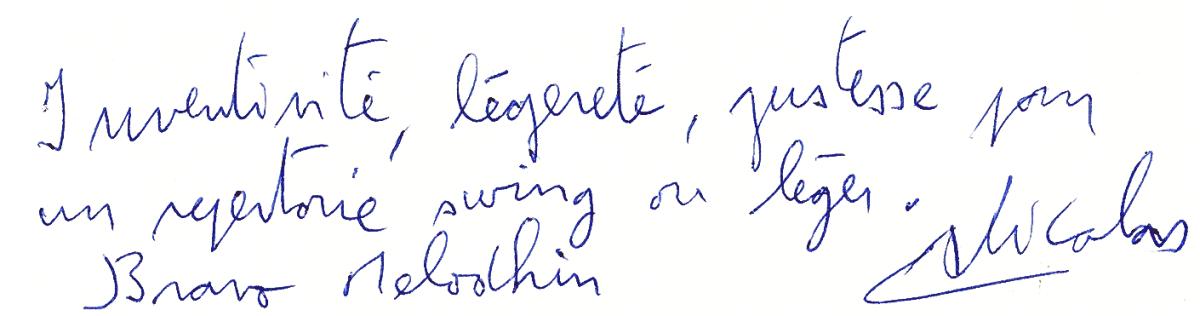 Inventivité, légereté, justesse pour
un repertoire swing ou léger.
Bravo Melodhin
Nicolas